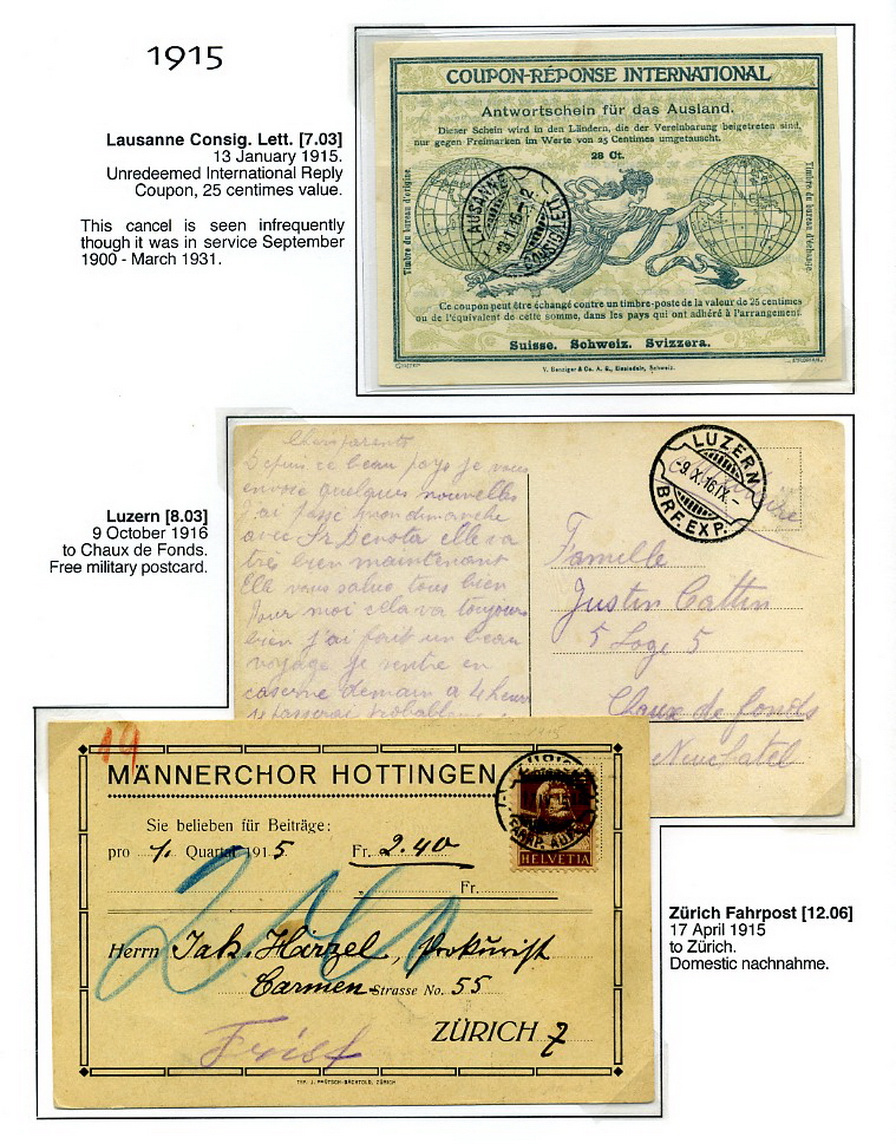 1915
Lausanne Consig. Lett. [7.03]
13 January 1915.
Unredeemed International Reply
Coupon, 25 centimes value.
This cancel is seen infrequently
though it was in service September
1900 - March 1931.
COUPON-RÉPONSE INTERNATIONAL
Antwortschein für das Ausland.
Dieser Schein wird in den Ländern, die der Vereinbarung beigetreten sind,
nur gegen Freimarken im Werte von 25 Centimes umgetauscht.
28 Ct.
Timbre du bureau d'origine.
Timbre du bureau d'échange.
LAUSANNE
Ce coupon peut être échangé contre un timbre-poste de la valeur de 25 centimes
ou de l'équivalent de cette somme, dans les pays qui ont adhéré à l'arrangement.
Suisse. Schweiz. Svizzera.
V. Benziger & Co. A. G., Einsiedeln, Schweiz.
Luzern [8.03]
9 October 1916
to Chaux de Fonds.
Free military postcard.
Chers parents
Depuis ce beau pays je vous
envoie quelques nouvelles
J'ai passé mon dimanche
avec Sr elle va
très bien maintenant
Elle vous salue tous bien
Pour moi cela va toujours
bien j'ai fait un beau
voyage je rentre en
caserne demain a 4 heures
LUZERN
-9.X.16.IX.-
BRF.EXP.
Famille
Justin Cattin
5 Loge 5
Chaux de fonds
Neuchatel
19
MÄNNERCHOR HOTTINGEN
Sie belieben für Beiträge:
pro 1. Quartal 1915 Fr. 2.40
" Fr.
HELVETIA
Herrn Jak. Hürzel, Prokurist
Carmen-Strasse No. 55
ZÜRICH 7
Frist
TYP. J. FRÜTSCH-BÄCHTOLD, ZÜRICH
Zürich Fahrpost [12.06]
17 April 1915
to Zürich.
Domestic nachnahme.